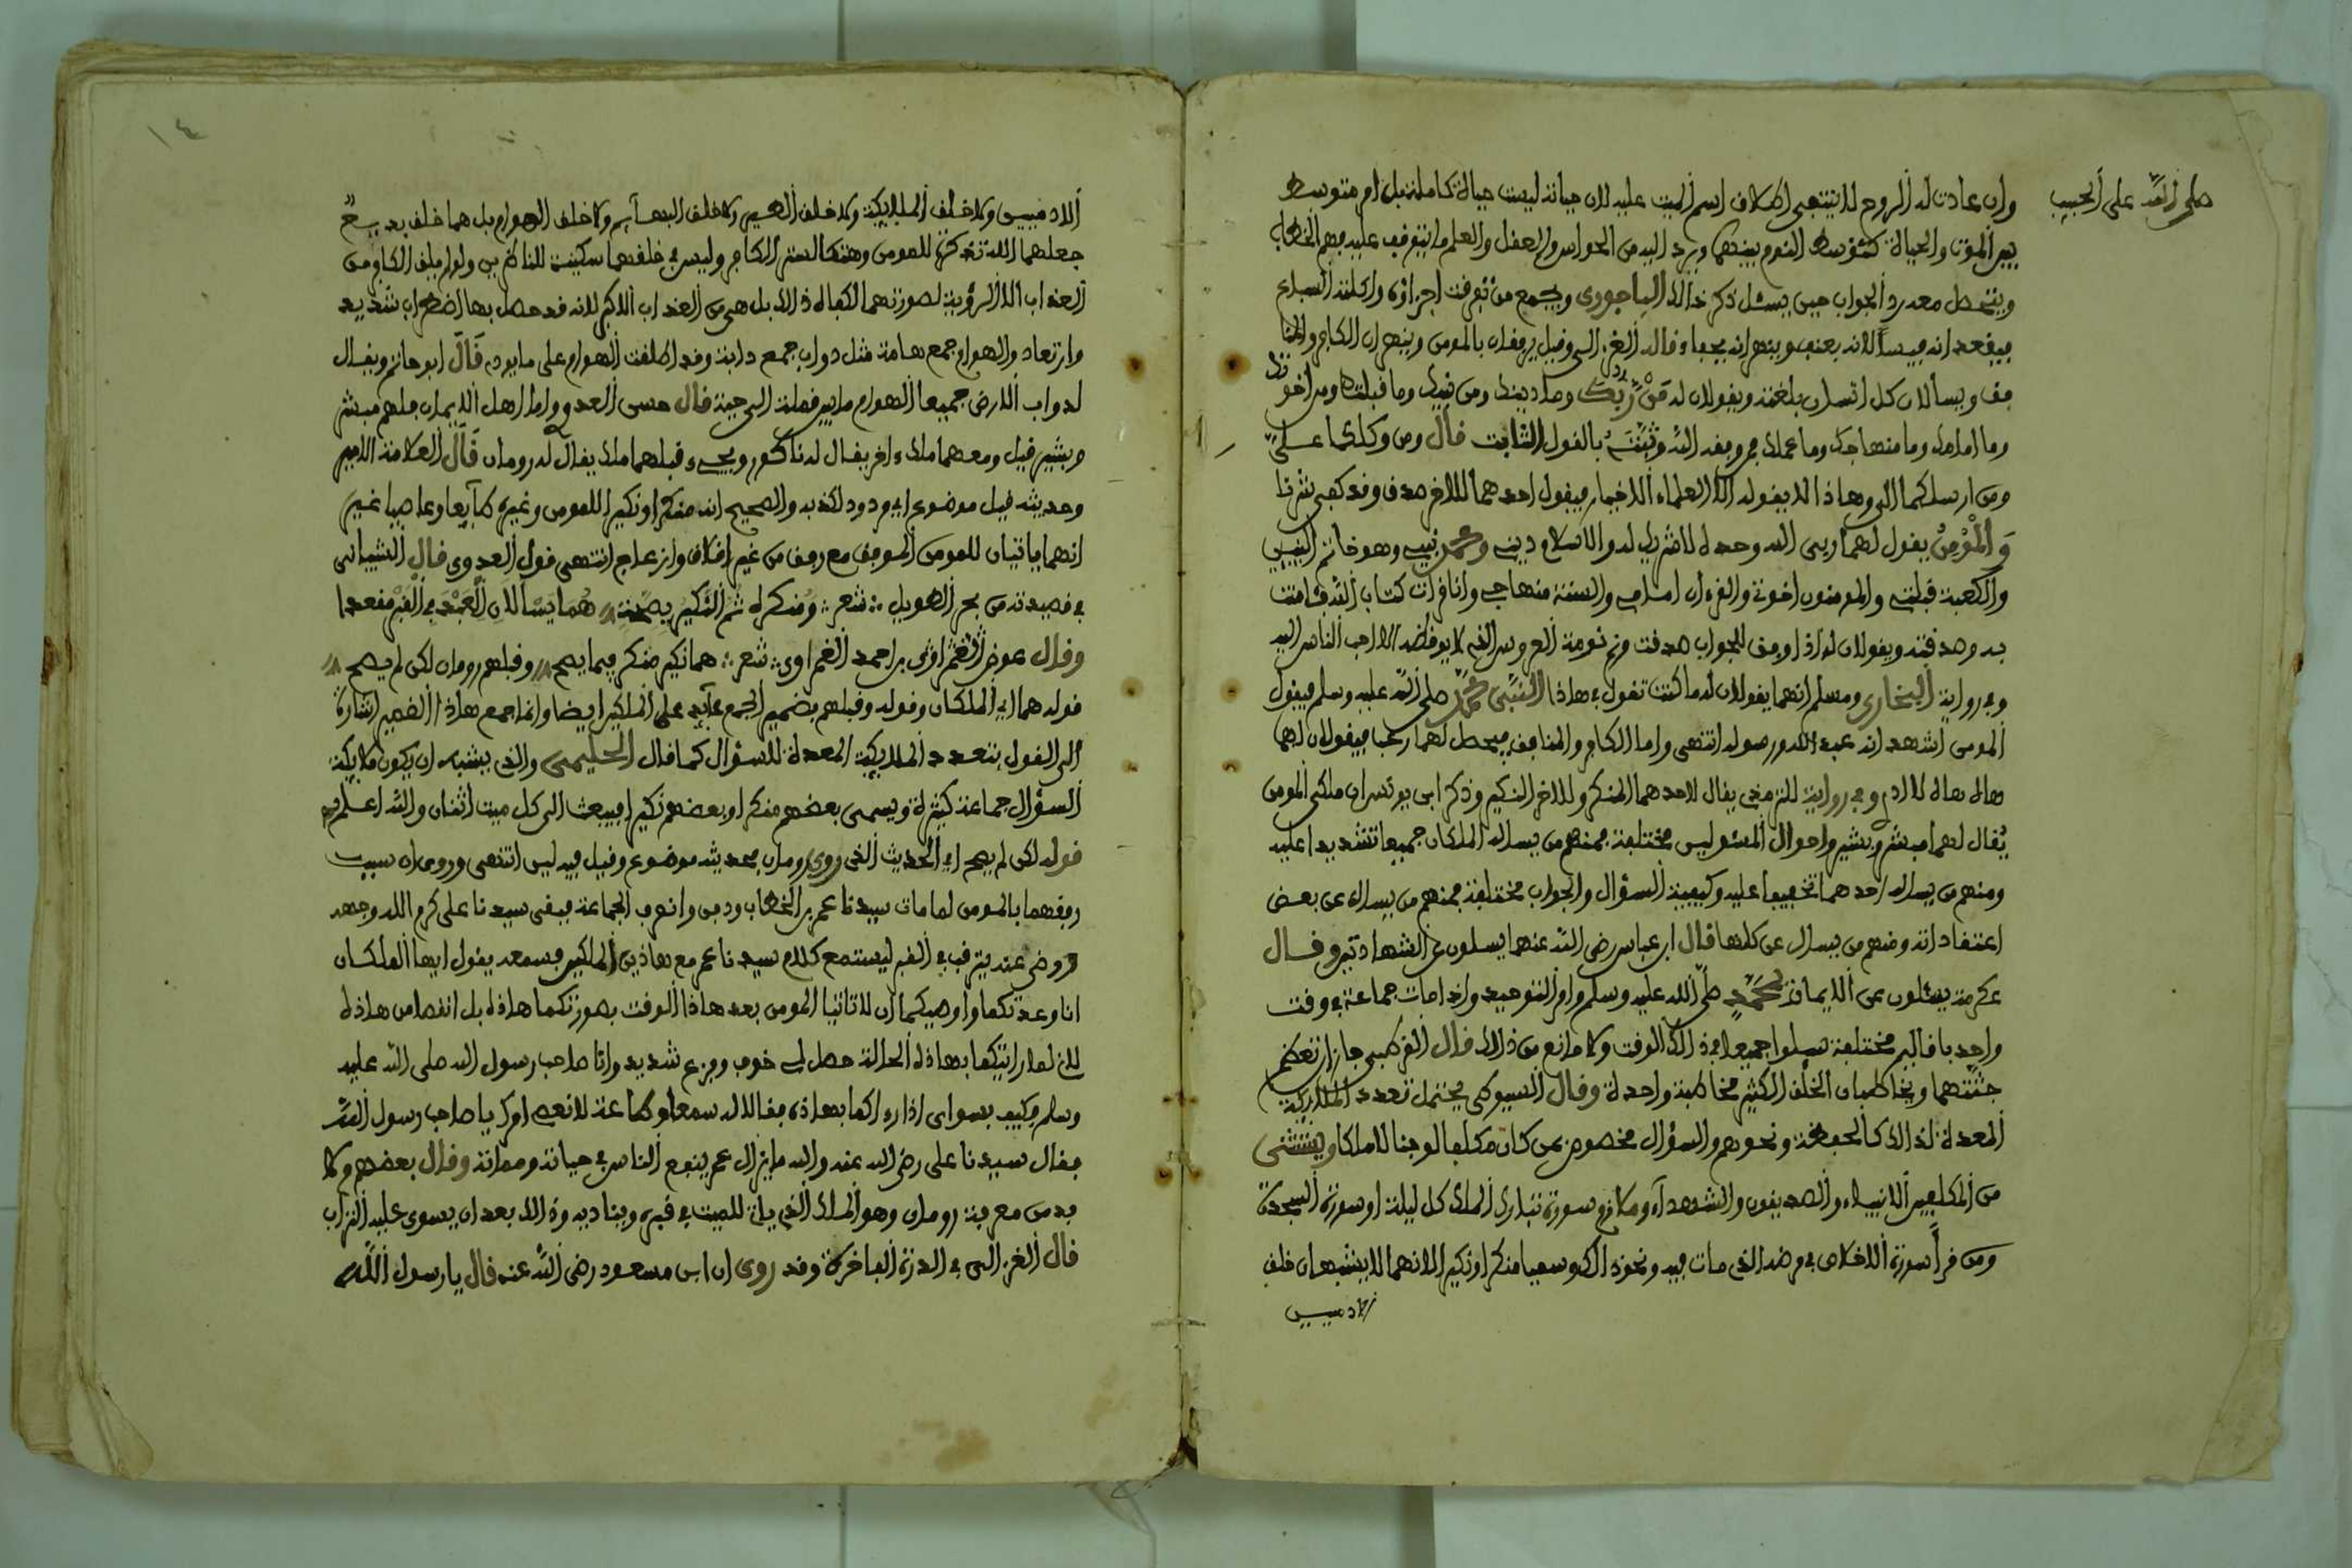 صلى الله على الحبيب
وان عادت له الروح لا ينتفي اطلاق اسم الميت عليه لان حياته ليست حياة كاملة بل امر متوسط
بين الموت والحياة كتوسط النوم بينهما ويرد اليه من الحواس والعقل والعلم ما يتوقف عليه فهم الخطاب
ويتحصل معه رد الجواب حين يسئل ذكر ذالك الباجوري ويجمع من تفرقت اجزاؤه واكلته السباع
فيقعد انه فيسألانه بعنف وينهرانه بجفاء قال الغزالي وقيل يرفقان بالمومن وينهران الكافر والمنا
فق ويسألان كل انسان بلغته ويقولان له من ربك وما دينك ومن نبيك وما قبلتك ومن اخوتك
وما امامك وما منهاجك وما عملك فمن وفقه الله وثبته بالقول الثابت قال ومن وكلكما علي
ومن ارسلكما الي وهاذا لا يقوله الا العلماء الاخيار فيقول احدهما للاخر صدق وقد كفي شرنا
والمؤمن يقول لهما ربي الله وحده لا شريك له والاسلام ديني ومحمد نبيي وهو خاتم النبيين
والكعبة قبلتي والمومنون اخوتي والقرءان امامي والسنة منهاجي وانا قرات كتاب الله فامنت
به وصدقته ويقولان له اذا وفق للجواب صدقت ونم نومة العروس الذي لا يوقظه الا احب الناس اليه
وفي رواية البخاري ومسلم انهما يقولان له ما كنت تقول في هاذا النبي محمد صلى الله عليه وسلم فيقول
المومن اشهد انه عبد الله ورسوله انتهى واما الكافر والمنافق فيحصل لهما رعب فيقولان لهما
هاه هاه لا ادري وفي رواية للترمذي يقال لاحدهما المنكر وللاخر النكير وذكر ابن يونس ان ملكي المومن
يقال لهما مبشر وبشير واحوال المسئولين مختلفة فمنهم من يساله الملكان جميعا تشديدا عليه
ومنهم من يساله احدهما تخفيفا عليه وكيفية السؤال والجواب مختلفة فمنهم من يسال عن بعض
اعتقاداته ومنهم من يسال عن كلها قال ابن عباس رضي الله عنهما يسلون عن الشهادتين وقال
عكرمة يسئلون عن الايمان بمحمد صلى الله عليه وسلم وامر التوحيد واذا مات جماعة في وقت
واحد باقاليم مختلفة سيلوا جميعا في ذالك الوقت ولا مانع من ذالك قال القرطبي جاز ان تعظم
جثتهما ويخاطبان الخلق الكثير مخاطبة واحدة وقال السيوطي يحتمل تعدد الملايكة
المعدة لذالك كالحفظة ونحوهم والسؤال مخصوص بمن كان مكلفا لو جنا لا ملكا ويستثنى
من المكلفين الانبياء والصديقون والشهداء وملازم سورة تبارك الملك كل ليلة او سورة السجدة
ومن قرأ سورة الاخلاص في مرضه الذي مات فيه ونحو ذالك وسميا منكرا ونكيرا لانهما لا يشبهان خلق
الادميين
١٤
الادميين ولا خلق الملايكة ولا خلق الطير ولا خلق البهآيم ولا خلق الهوام بل هما خلق بديع
جعلهما الله تذكرة للمومن وهتكا لستر الكافر وليس في خلقهما سكينة للناظرين ولو لم يلق الكافر من
العذاب الا الرؤية لصورتهما لكفاه ذالك بل هي من العذاب الاكبر لانه قد حصل بها اضطراب شديد
وارتعاد والهوام جمع هامة مثل دواب جمع دابة وقد اطلقت الهوام على ما يوذي قال ابو حاتم ويقال
لدواب الارض جميعا الهوام ما بين قملة الى حية قال حسن العدوي واما اهل الايمان فلهم مبشر
وبشير قيل ومعهما ملك ءاخر يقال له ناكور ويجيء قبلهما ملك يقال له رومان قال العلامة الامير
وحديثه قيل موضوع اي مردود لكذبه والصحيح انه منكرا ونكيرا للمومن وغيره طآيعا وعاصيا غير
انهما ياتيان للمومن الموفق مع رفق من غير اقلاق وازعاج انتهى قول العدوي قال الشيباني
في قصيدته من بحر الطويل شعر ومنكره ثم النكير بصحة هما يسألان العبد في القبر مقعدا
وقال عوض الغمراوي بن احمد الغمراوي شعر هما نكير منكر فيما يصح وقبلهم رومان لكن لم يصح
قوله هما اي الملكان وقوله وقبلهم بضمير الجمع عآيد على الملكين ايضا وانما جمع هاذا الضمير اشارة
الى القول بتعدد الملايكة المعدة للسؤال كما قال الحليمي والذي يشبه ان يكون ملايكة
السؤال جماعة كثيرة ويسمى بعضهم منكرا وبعضهم نكيرا فيبعث الى كل ميت اثنان والله اعلم
قوله لكن لم يصح اي الحديث الذي روي رومان فحديثه موضوع وقيل فيه لين انتهى وروي ان سبب
رفقهما بالمومن لما مات سيدنا عمر بن الخطاب ودفن وانصرف الجماعة فبقي سيدنا علي كرم الله وجهه
ورضي عنه يترقب في القبر ليستمع كلام سيدنا عمر مع هاذين الملكين فسمعه يقول ايها الملكان
انا وعدتكما واوصيكما ان لا تاتيا المومن بعد هاذا الوقت بصورتكما هاذه بل انقصا من هاذه
لاني لما رايتكما بهاذه الحالة حصل لي خوف وفزع شديد وانا صاحب رسول الله صلى الله عليه
وسلم فكيف بسواي اذا رءاكما بهاذه فقالا له سمعا وطاعة لا نعصي امرك يا صاحب رسول الله
فقال سيدنا علي رضي الله عنه والله ما يزال عمر ينفع الناس في حياته ومماته وقال بعضهم ولا
بد من معرفة رومان وهو الملك الذي ياتي للميت في قبره ويناديه وذالك بعد ان يسوى عليه التراب
قال الغزالي في الدرة الفاخرة وقد روي ان ابن مسعود رضي الله عنه قال يا رسول الله